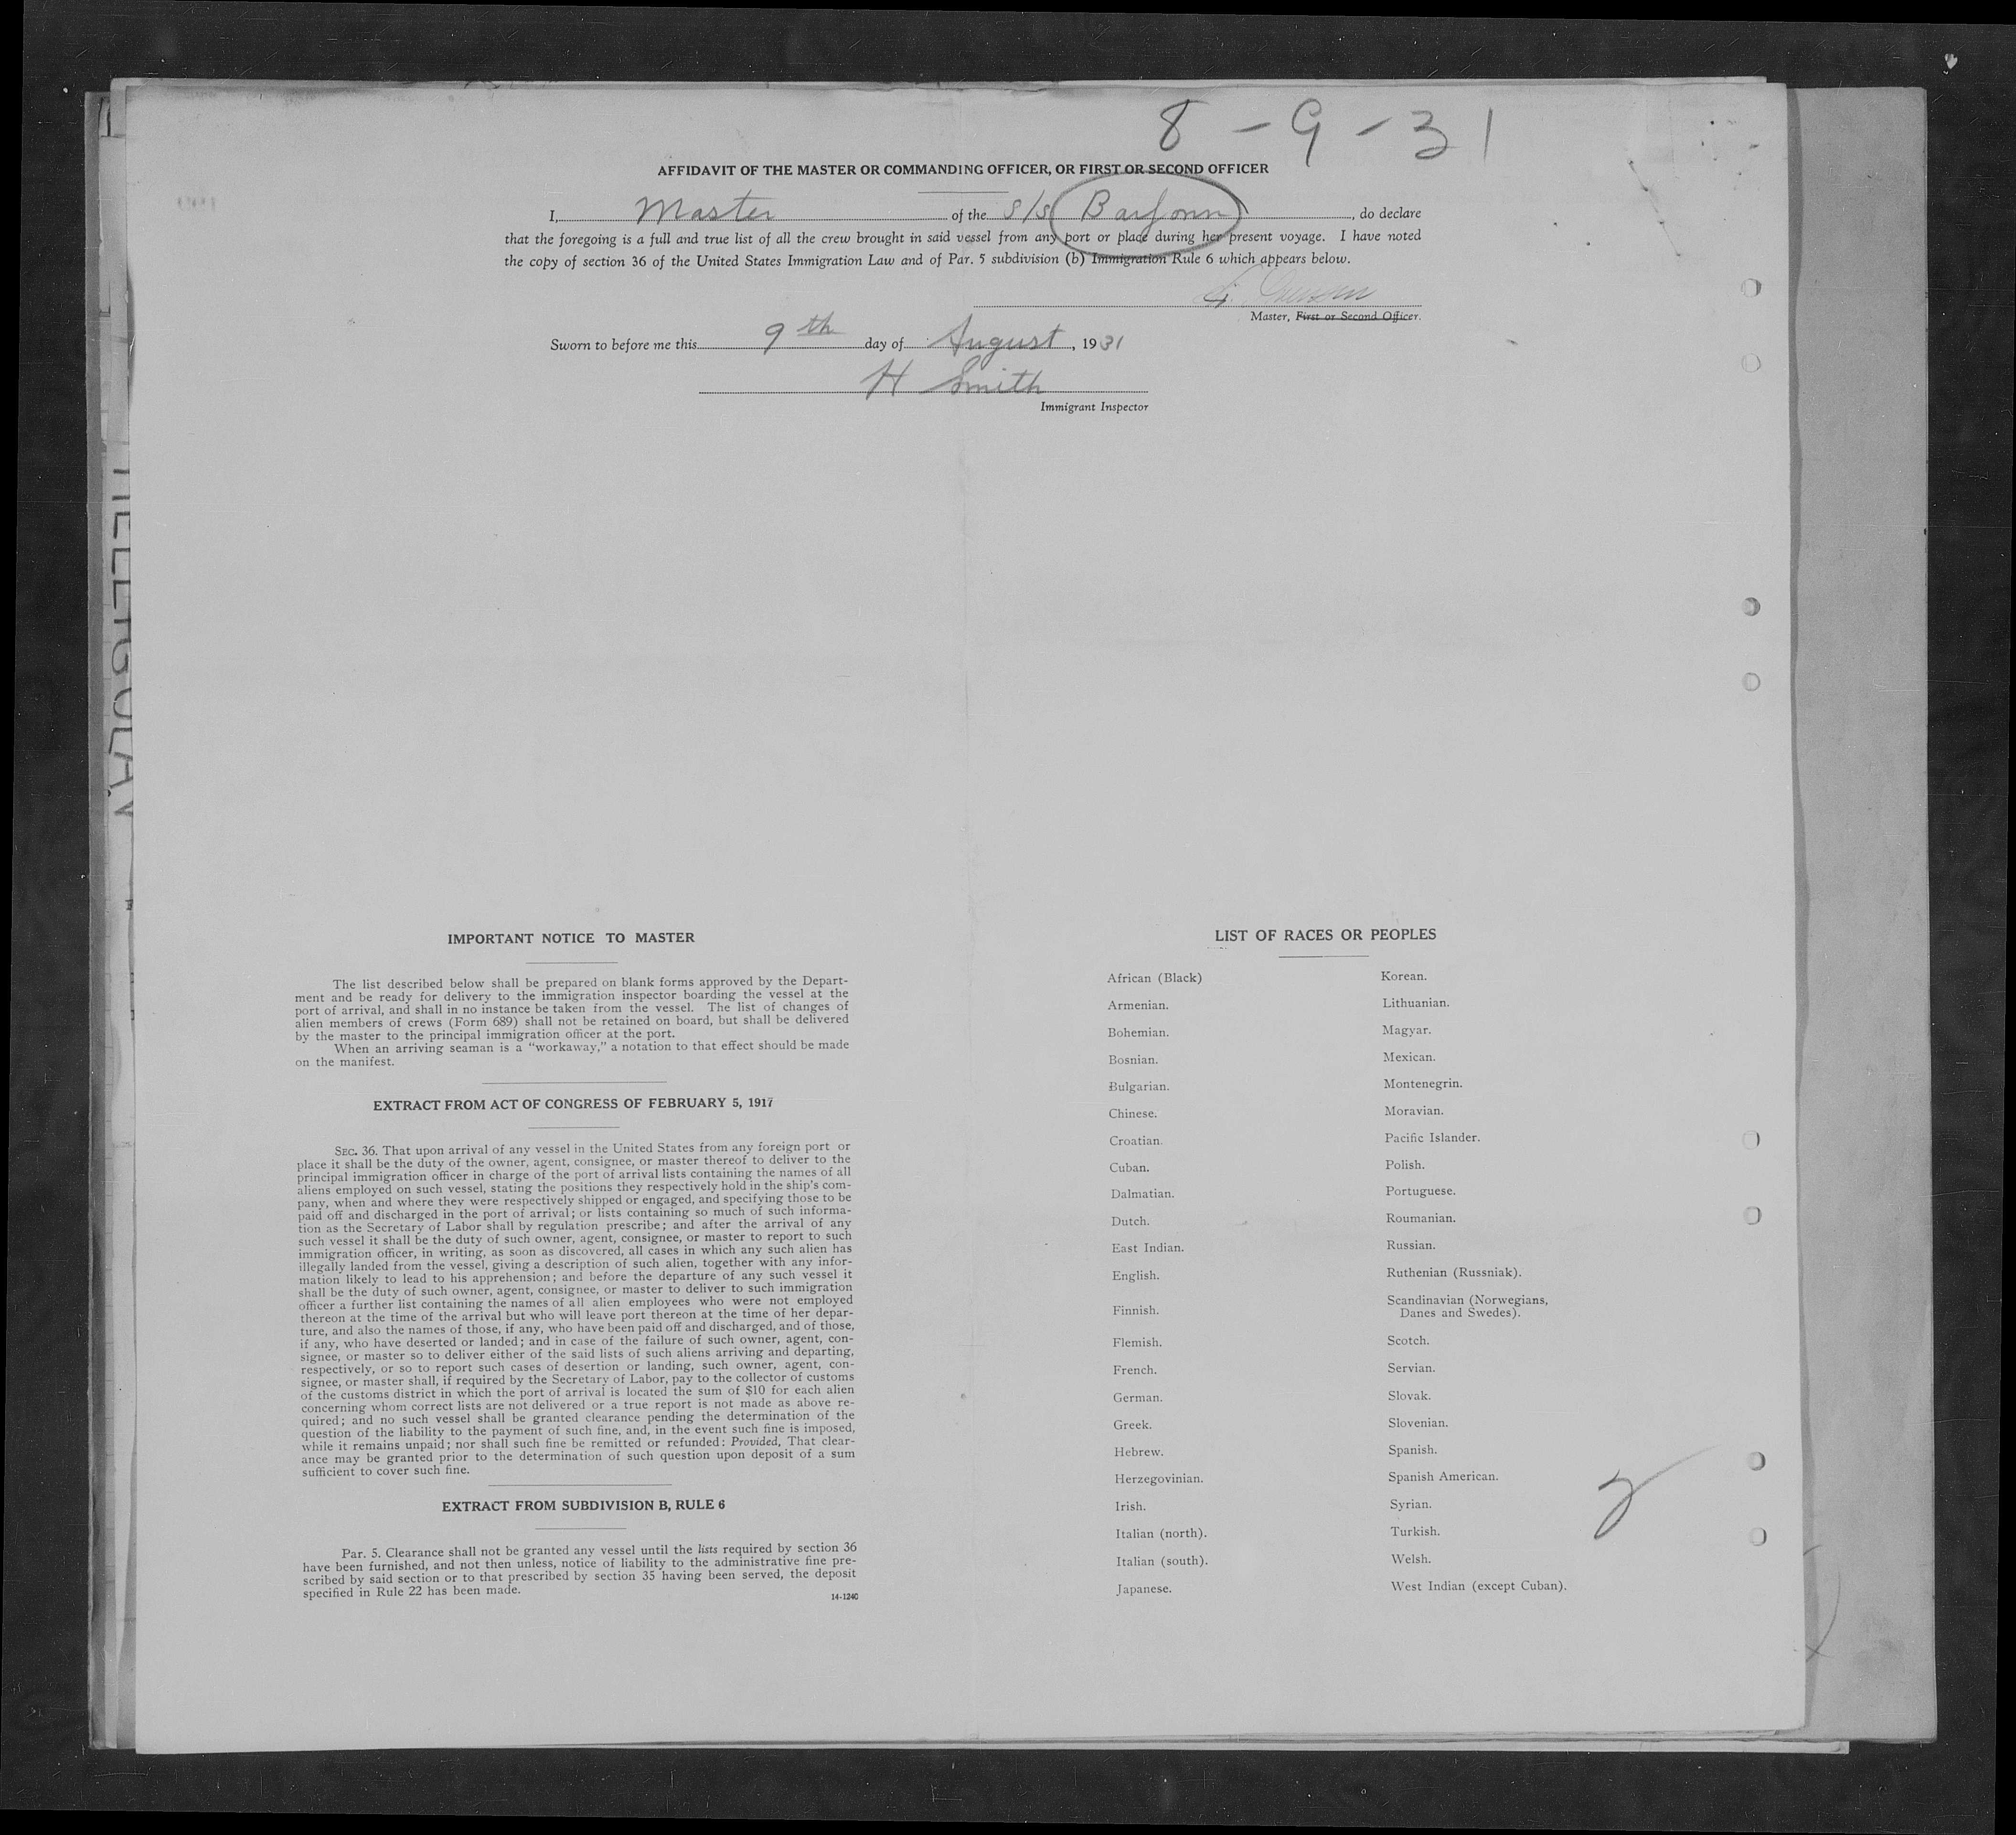 8 - 9 - 31
AFFIDAVIT OF THE MASTER OR COMMANDING OFFICER, OR FIRST OR SECOND OFFICER
I, Master of the S/S Barfonn, do declare
that the foregoing is a full and true list of all the crew brought in said vessel from any port or place during her present voyage. I have noted
the copy of section 36 of the United States Immigration Law and of Par. 5 subdivision (b) Immigration Rule 6 which appears below.
Master, First or Second Officer.
Sworn to before me this 9th day of August, 1931
H Smith
Immigrant Inspector
IMPORTANT NOTICE TO MASTER
The list described below shall be prepared on blank forms approved by the Depart-
ment and be ready for delivery to the immigration inspector boarding the vessel at the
port of arrival, and shall in no instance be taken from the vessel. The list of changes of
alien members of crews (Form 689) shall not be retained on board, but shall be delivered
by the master to the principal immigration officer at the port.
When an arriving seaman is a "workaway," a notation to that effect should be made
on the manifest.
EXTRACT FROM ACT OF CONGRESS OF FEBRUARY 5, 1917
SEC. 36. That upon arrival of any vessel in the United States from any foreign port or
place it shall be the duty of the owner, agent, consignee, or master thereof to deliver to the
principal immigration officer in charge of the port of arrival lists containing the names of all
aliens employed on such vessel, stating the positions they respectively hold in the ship's com-
pany, when and where they were respectively shipped or engaged, and specifying those to be
paid off and discharged in the port of arrival; or lists containing so much of such informa-
tion as the Secretary of Labor shall by regulation prescribe; and after the arrival of any
such vessel it shall be the duty of such owner, agent, consignee, or master to report to such
immigration officer, in writing, as soon as discovered, all cases in which any such alien has
illegally landed from the vessel, giving a description of such alien, together with any infor-
mation likely to lead to his apprehension; and before the departure of any such vessel it
shall be the duty of such owner, agent, consignee, or master to deliver to such immigration
officer a further list containing the names of all alien employees who were not employed
thereon at the time of the arrival but who will leave port thereon at the time of her depar-
ture, and also the names of those, if any, who have been paid off and discharged, and of those,
if any, who have deserted or landed; and in case of the failure of such owner, agent, con-
signee, or master so to deliver either of the said lists of such aliens arriving and departing,
respectively, or so to report such cases of desertion or landing, such owner, agent, con-
signee, or master shall, if required by the Secretary of Labor, pay to the collector of customs
of the customs district in which the port of arrival is located the sum of $10 for each alien
concerning whom correct lists are not delivered or a true report is not made as above re-
quired; and no such vessel shall be granted clearance pending the determination of the
question of the liability to the payment of such fine, and, in the event such fine is imposed,
while it remains unpaid; nor shall such fine be remitted or refunded: Provided, That clear-
ance may be granted prior to the determination of such question upon deposit of a sum
sufficient to cover such fine.
EXTRACT FROM SUBDIVISION B, RULE 6
Par. 5. Clearance shall not be granted any vessel until the lists required by section 36
have been furnished, and not then unless, notice of liability to the administrative fine pre-
scribed by said section or to that prescribed by section 35 having been served, the deposit
specified in Rule 22 has been made.
14-1240
LIST OF RACES OR PEOPLES
African (Black)
Armenian.
Bohemian.
Bosnian.
Bulgarian.
Chinese.
Croatian.
Cuban.
Dalmatian.
Dutch.
East Indian.
English.
Finnish.
Flemish.
French.
German.
Greek.
Hebrew.
Herzegovinian.
Irish.
Italian (north).
Italian (south).
Japanese.
Korean.
Lithuanian.
Magyar.
Mexican.
Montenegrin.
Moravian.
Pacific Islander.
Polish.
Portuguese.
Roumanian.
Russian.
Ruthenian (Russniak).
Scandinavian (Norwegians,
Danes and Swedes).
Scotch.
Servian.
Slovak.
Slovenian.
Spanish.
Spanish American.
Syrian.
Turkish.
Welsh.
West Indian (except Cuban).